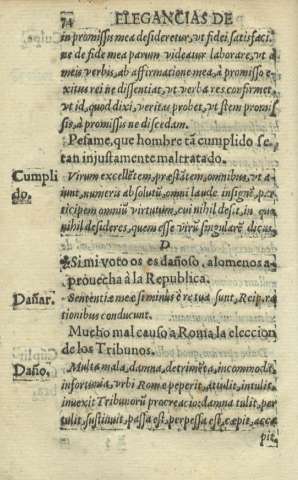 74 ELEGANCIAS DE
in promissis mea desideretur, vt fidei satisfaci.
ne de fide mea parum videatur laborare, vt à
meis verbis, ab affirmatione mea, à promisso e-
xitus rei ne dissentiat, vt verba res confirmet
vt id, quod dixi, veritas probet, vt stem promis
sis, à promissis ne discedam.
Pesame, que hombre tã cumplido se-
tan injustamente maltratado.
Cumpli
do.
Virum excellẽtem, præstãtem, omnibus, vt a-
iunt, numeris absolutũ, omni laude insignẽ, par
ticipem omniũ virtutum, cui nihil desit, in quo
nihil desideres, quem esse virũ singularẽ
D
Si mi voto os es dañoso, alomenos a-
prouecha à la Republica.
Dañar.
Sententiæ meæ si minus è re tua sunt, Reip. ra-
tionibus conducunt.
Mucho mal causo a Roma la eleccion
de los Tribunos.
Daño.
Multa mala, damna, detrimẽta, incommoda
infortunia, vrbi Romæ peperit, attulit, intulit,
inuexit Tribunorũ procreatio: damna tulit, per
tulit, sustinuit, passa est, perpessa est, cœpit, acce
pit